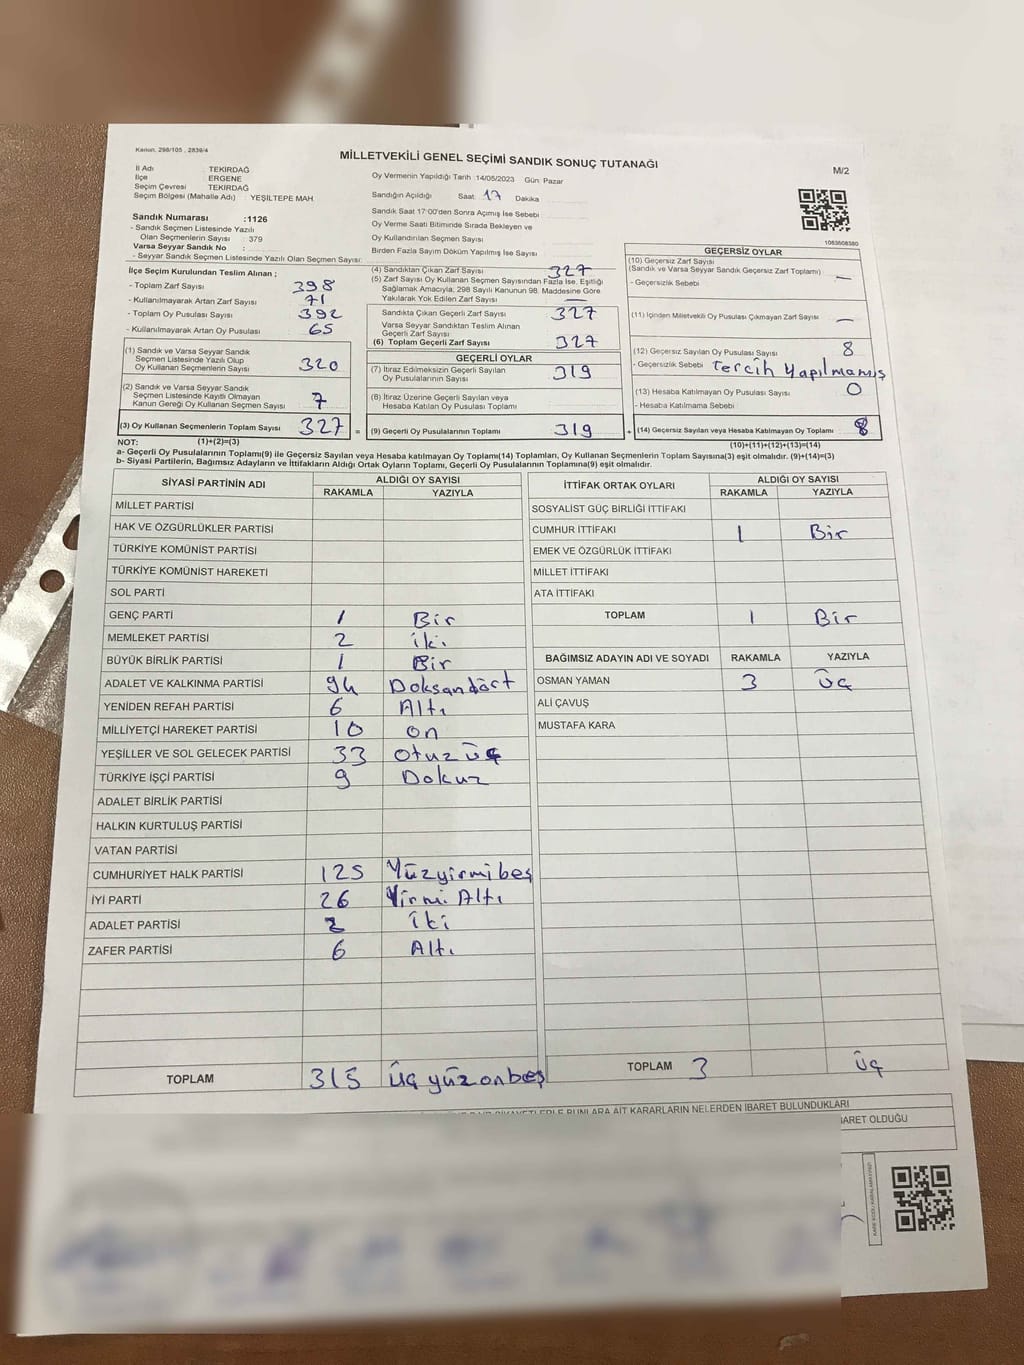 Kanun, 298/105 , 2839/4
MİLLETVEKİLİ GENEL SEÇİMİ SANDIK SONUÇ TUTANAĞI
M/2
İl Adı TEKİRDAĞ
İlçe ERGENE
Seçim Çevresi TEKİRDAĞ
Seçim Bölgesi (Mahalle Adı) YEŞİLTEPE MAH.
Oy Vermenin Yapıldığı Tarih :14/05/2023 Gün: Pazar
Sandığın Açıldığı Saat: 17 Dakika
Sandık Saat 17:00'den Sonra Açımış İse Sebebi
Oy Verme Saati Bitiminde Sırada Bekleyen ve
Oy Kullandırılan Seçmen Sayısı
Birden Fazla Sayım Döküm Yapılmış İse Sayısı
1083608380
Sandık Numarası :1126
- Sandık Seçmen Listesinde Yazılı
Olan Seçmenlerin Sayısı : 379
Varsa Seyyar Sandık No :
- Seyyar Sandık Seçmen Listesinde Yazılı Olan Seçmen Sayısı:
İlçe Seçim Kurulundan Teslim Alınan ;
- Toplam Zarf Sayısı 398
- Kullanılmayarak Artan Zarf Sayısı 71
- Toplam Oy Pusulası Sayısı 392
- Kullanılmayarak Artan Oy Pusulası 65
(1) Sandık ve Varsa Seyyar Sandık
Seçmen Listesinde Yazılı Olup
Oy Kullanan Seçmenlerin Sayısı 320
(2) Sandık ve Varsa Seyyar Sandık
Seçmen Listesinde Kayıtlı Olmayan
Kanun Gereği Oy Kullanan Seçmen Sayısı 7
(3) Oy Kullanan Seçmenlerin Toplam Sayısı 327 =
(4) Sandıktan Çıkan Zarf Sayısı 327
(5) Zarf Sayısı Oy Kullanan Seçmen Sayısından Fazla İse, Eşitliği
Sağlamak Amacıyla; 298 Sayılı Kanunun 98. Maddesine Göre
Yakılarak Yok Edilen Zarf Sayısı —
Sandıkta Çıkan Geçerli Zarf Sayısı 327
Varsa Seyyar Sandıktan Teslim Alınan
Geçerli Zarf Sayısı
(6) Toplam Geçerli Zarf Sayısı 327
GEÇERLİ OYLAR
(7) İtiraz Edilmeksizin Geçerli Sayılan
Oy Pusulalarının Sayısı 319
(8) İtiraz Üzerine Geçerli Sayılan veya
Hesaba Katılan Oy Pusulası Toplamı
(9) Geçerli Oy Pusulalarının Toplamı 319 +
GEÇERSİZ OYLAR
(10) Geçersiz Zarf Sayısı
(Sandık ve Varsa Seyyar Sandık Geçersiz Zarf Toplamı) —
- Geçersizlik Sebebi
(11) İçinden Milletvekili Oy Pusulası Çıkmayan Zarf Sayısı —
(12) Geçersiz Sayılan Oy Pusulası Sayısı 8
- Geçersizlik Sebebi Tercih Yapılmamış
(13) Hesaba Katılmayan Oy Pusulası Sayısı 0
- Hesaba Katılmama Sebebi
(14) Geçersiz Sayılan veya Hesaba Katılmayan Oy Toplamı 8
NOT: (1)+(2)=(3)
(10)+(11)+(12)+(13)=(14)
a- Geçerli Oy Pusulalarının Toplamı(9) ile Geçersiz Sayılan veya Hesaba Katılmayan Oy Toplamı(14) Toplamları, Oy Kullanan Seçmenlerin Toplam Sayısına(3) eşit olmalıdır. (9)+(14)=(3)
b- Siyasi Partilerin, Bağımsız Adayların ve İttifakların Aldığı Ortak Oyların Toplamı, Geçerli Oy Pusulalarının Toplamına(9) eşit olmalıdır.
SİYASİ PARTİNİN ADI ALDIĞI OY SAYISI
RAKAMLA YAZIYLA
MİLLET PARTİSİ
HAK VE ÖZGÜRLÜKLER PARTİSİ
TÜRKİYE KOMÜNİST PARTİSİ
TÜRKİYE KOMÜNİST HAREKETİ
SOL PARTİ
GENÇ PARTİ 1 Bir
MEMLEKET PARTİSİ 2 iki
BÜYÜK BİRLİK PARTİSİ 1 Bir
ADALET VE KALKINMA PARTİSİ 94 Doksandört
YENİDEN REFAH PARTİSİ 6 Altı
MİLLİYETÇİ HAREKET PARTİSİ 10 on
YEŞİLLER VE SOL GELECEK PARTİSİ 33 Otuz üç
TÜRKİYE İŞÇİ PARTİSİ 9 Dokuz
ADALET BİRLİK PARTİSİ
HALKIN KURTULUŞ PARTİSİ
VATAN PARTİSİ
CUMHURİYET HALK PARTİSİ 125 Yüzyirmibeş
İYİ PARTİ 26 Yirmi Altı
ADALET PARTİSİ 2 iki
ZAFER PARTİSİ 6 Altı
TOPLAM 315 Üç yüz onbeş
İTTİFAK ORTAK OYLARI ALDIĞI OY SAYISI
RAKAMLA YAZIYLA
SOSYALİST GÜÇ BİRLİĞİ İTTİFAKI
CUMHUR İTTİFAKI 1 Bir
EMEK VE ÖZGÜRLÜK İTTİFAKI
MİLLET İTTİFAKI
ATA İTTİFAKI
TOPLAM 1 Bir
BAĞIMSIZ ADAYIN ADI VE SOYADI RAKAMLA YAZIYLA
OSMAN YAMAN 3 Üç
ALİ ÇAVUŞ
MUSTAFA KARA
TOPLAM 3 Üç
BUNLARA AİT KARARLARIN NELERDEN İBARET BULUNDUKLARI
İBARET OLDUĞU